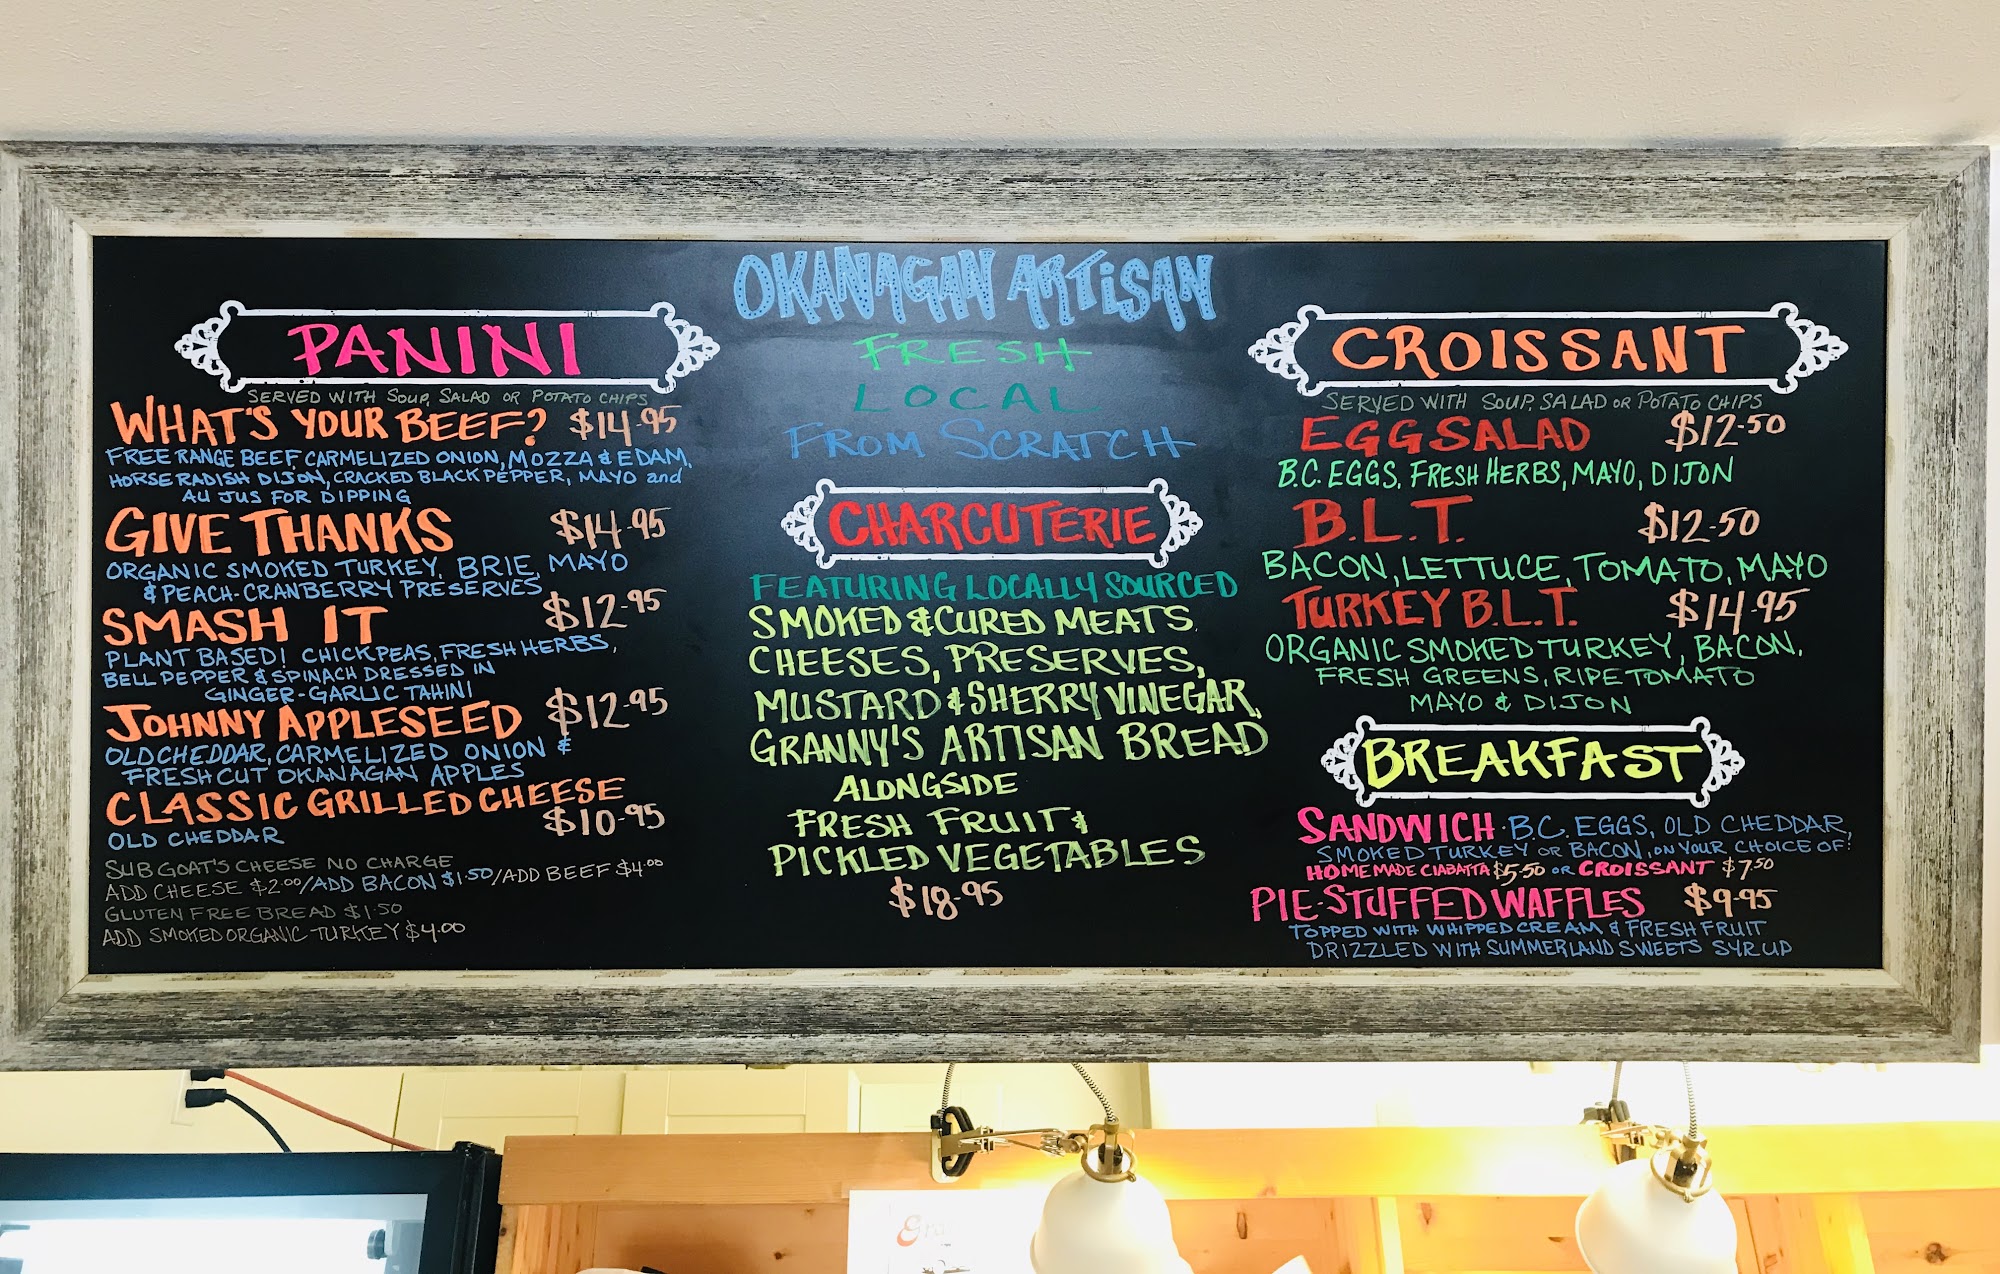 OKANAGAN ARTiSAN
FRESH
LOCAL
FROM SCRATCH
PANINI
SERVED WITH SOUP, SALAD OR POTATO CHIPS
WHAT'S YOUR BEEF? $14.95
FREE RANGE BEEF, CARMELIZED ONION, MOZZA & EDAM,
HORSE RADISH DIJON, CRACKED BLACK PEPPER, MAYO and
AU JUS FOR DIPPING
GIVE THANKS $14.95
ORGANIC SMOKED TURKEY, BRIE, MAYO
& PEACH-CRANBERRY PRESERVES
SMASH IT $12.95
PLANT BASED! CHICKPEAS, FRESH HERBS,
BELL PEPPER & SPINACH DRESSED IN
GINGER-GARLIC TAHINI
JOHNNY APPLESEED $12.95
OLD CHEDDAR, CARMELIZED ONION &
FRESH CUT OKANAGAN APPLES
CLASSIC GRILLED CHEESE
$10.95
OLD CHEDDAR
SUB GOAT'S CHEESE NO CHARGE
ADD CHEESE $2.00/ADD BACON $1.50/ADD BEEF $4.00
GLUTEN FREE BREAD $1.50
ADD SMOKED ORGANIC TURKEY $4.00
CHARCUTERIE
FEATURING LOCALLY SOURCED
SMOKED & CURED MEATS,
CHEESES, PRESERVES,
MUSTARD & SHERRY VINEGAR,
GRANNY'S ARTISAN BREAD
ALONGSIDE
FRESH FRUIT &
PICKLED VEGETABLES
$18.95
CROISSANT
SERVED WITH SOUP, SALAD OR POTATO CHIPS
EGG SALAD $12.50
B.C. EGGS, FRESH HERBS, MAYO, DIJON
B.L.T. $12.50
BACON, LETTUCE, TOMATO, MAYO
TURKEY B.L.T. $14.95
ORGANIC SMOKED TURKEY, BACON,
FRESH GREENS, RIPE TOMATO
MAYO & DIJON
BREAKFAST
SANDWICH · B.C. EGGS, OLD CHEDDAR,
SMOKED TURKEY OR BACON, ON YOUR CHOICE OF:
HOMEMADE CIABATTA $5.50 OR CROISSANT $7.50
PIE-STUFFED WAFFLES $9.95
TOPPED WITH WHIPPED CREAM & FRESH FRUIT
DRIZZLED WITH SUMMERLAND SWEETS SYRUP